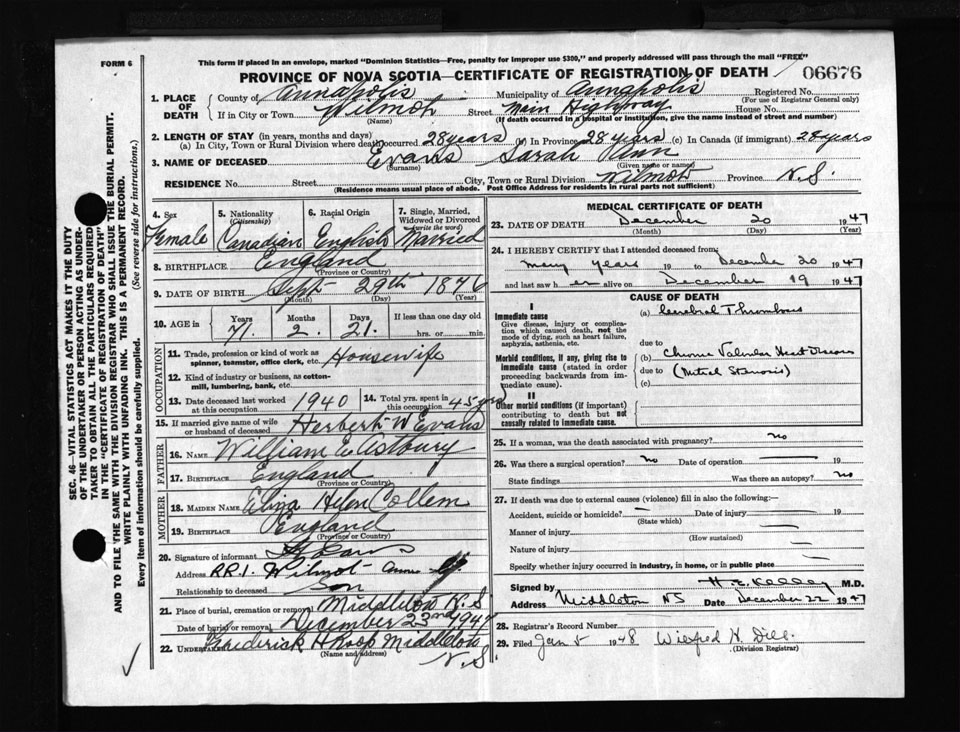 FORM 6
This form if placed in an envelope, marked "Dominion Statistics—Free, penalty for improper use $300," and properly addressed will pass through the mail "FREE"
PROVINCE OF NOVA SCOTIA—CERTIFICATE OF REGISTRATION OF DEATH 06676
1. PLACE OF DEATH
County of Annapolis Municipality of Annapolis Registered No.
(For use of Registrar General only)
If in City or Town Wilmot Street Main Highway House No.
(Name) (If death occurred in a hospital or institution, give the name instead of street and number)
2. LENGTH OF STAY (in years, months and days)
(a) In City, Town or Rural Division where death occurred 28 years (b) In Province 28 years (c) In Canada (if immigrant) 28 years
3. NAME OF DECEASED Evans Sarah Ann
(Surname) (Given name or names)
RESIDENCE No. Street City, Town or Rural Division Wilmot Province N.S.
(Residence means usual place of abode. Post Office Address for residents in rural parts not sufficient)
4. Sex Female
5. Nationality (Citizenship) Canadian
6. Racial Origin English
7. Single, Married, Widowed or Divorced (write the word) Married
8. BIRTHPLACE England
(Province or Country)
9. DATE OF BIRTH Sept 29th 1876
(Month) (Day) (Year)
10. AGE in Years Months Days If less than one day old
71. 2. 21. hrs. or min.
OCCUPATION
11. Trade, profession or kind of work as spinner, teamster, office clerk, etc. Housewife
12. Kind of industry or business, as cotton-mill, lumbering, bank, etc.
13. Date deceased last worked at this occupation 1940
14. Total yrs. spent in this occupation 45 yrs
15. If married give name of wife or husband of deceased Herbert W Evans
FATHER
16. NAME William E Astbury
17. BIRTHPLACE England
MOTHER
18. MAIDEN NAME Eliza Helen Collem
19. BIRTHPLACE England
(Province or Country)
20. Signature of informant
Address RR1. Wilmot
Relationship to deceased son
21. Place of burial, cremation or removal Middleton N.S
Date of burial or removal December 23rd 1947
22. Undertaker H Roop Middleton N.S.
(Name and address)
MEDICAL CERTIFICATE OF DEATH
23. DATE OF DEATH December 20 1947
(Month) (Day) (Year)
24. I HEREBY CERTIFY that I attended deceased from:
many years 19 to December 20 1947
and last saw h er alive on December 19 1947
CAUSE OF DEATH
I
Immediate cause
Give disease, injury or complication which caused death, not the mode of dying, such as heart failure, asphyxia, asthenia, etc.
(a) Cerebral Thrombosis
due to
Morbid conditions, if any, giving rise to immediate cause (stated in order proceeding backwards from immediate cause).
(b) Chronic Valvular Heart Disease
due to (Mitral Stenosis)
(c)
II
Other morbid conditions (if important) contributing to death but not causally related to immediate cause.
25. If a woman, was the death associated with pregnancy? no
26. Was there a surgical operation? no Date of operation 19
State findings Was there an autopsy? no
27. If death was due to external causes (violence) fill in also the following:—
Accident, suicide or homicide? — Date of injury 19
(State which)
Manner of injury
(How sustained)
Nature of injury
Specify whether injury occurred in industry, in home, or in public place
Signed by H. E. Kelley M.D.
Address Middleton NS Date December 22 1947
28. Registrar's Record Number
29. Filed Jan 5 1948 Wilfred H. Dill.
(Division Registrar)
SEC. 46—VITAL STATISTICS ACT MAKES IT THE DUTY
OF THE UNDERTAKER OR PERSON ACTING AS UNDERTAKER TO OBTAIN ALL THE PARTICULARS REQUIRED
IN THE "CERTIFICATE OF REGISTRATION OF DEATH"
AND TO FILE THE SAME WITH THE DIVISION REGISTRAR WHO SHALL ISSUE THE BURIAL PERMIT.
WRITE PLAINLY WITH UNFADING INK. THIS IS A PERMANENT RECORD.
Every item of information should be carefully supplied. (See reverse side for instructions.)